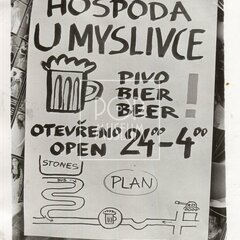 HOSPODA
U MYSLIVCE
PIVO
BIER
BEER !
OTEVŘENO
OPEN 24⁰⁰-4⁰⁰
STONES
BUS
PLAN